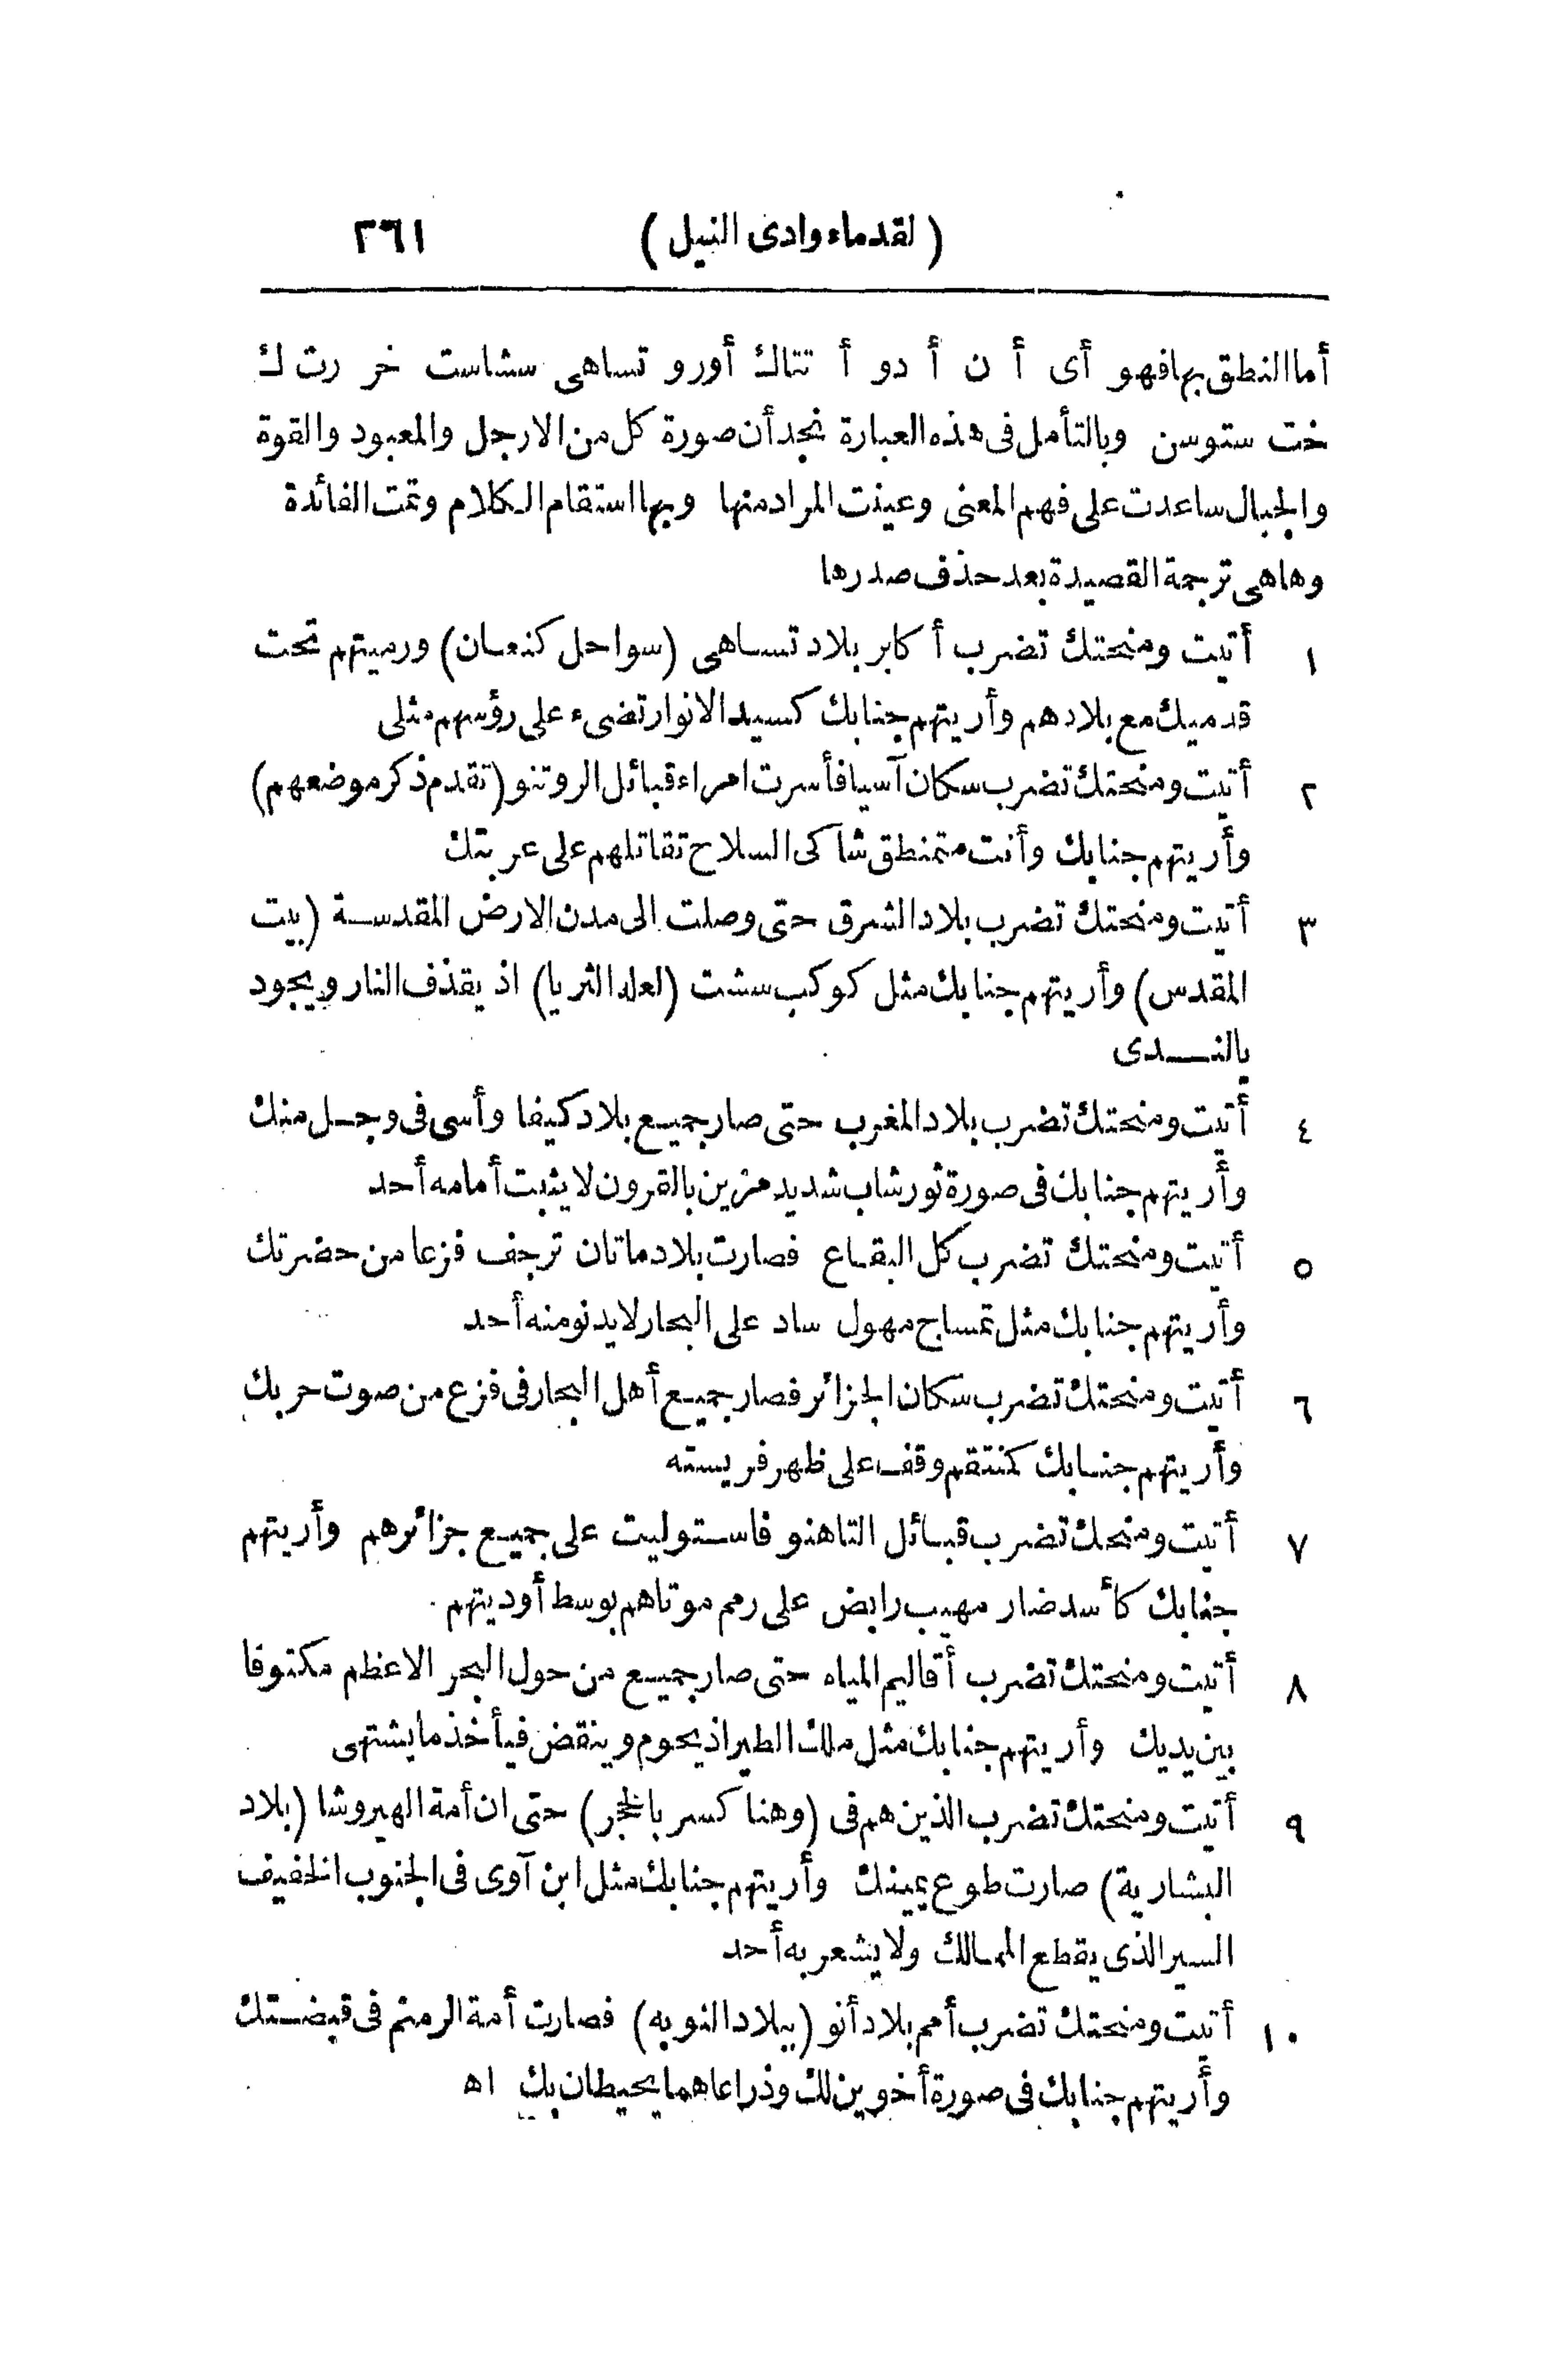 (لقدماء وادى النيل) ٢٦١
أما النطق بها فهو أى أ ن أ دو أ تتاك أورو تساهى سشاست خر رت ك
خت ستوسن وبالتأمل فى هذه العبارة نجد أن صورة كل من الارجل والمعبود والقوة
والجبال ساعدت على فهم المعنى وعينت المراد منها وبها استقام الكلام وتمت الفائدة
وهاهى ترجمة القصيدة بعد حذف صدرها
١ أتيت ومنحتك تضرب أكابر بلاد تساهى (سواحل كنعان) ورميتهم تحت
قدميك مع بلادهم وأريتهم جنابك كسيد الانوار تضىء على رؤسهم مثلى
٢ أتيت ومنحتك تضرب سكان آسيا فأسرت امراء قبائل الروتنو (تقدم ذكر موضعهم)
وأريتهم جنابك وأنت متمنطق شاكى السلاح تقاتلهم على عربتك
٣ أتيت ومنحتك تضرب بلاد الشرق حتى وصلت الى مدن الارض المقدسة (بيت
المقدس) وأريتهم جنابك مثل كوكب سشت (لعله الثريا) اذ يقذف النار ويجود
بالندى
٤ أتيت ومنحتك تضرب بلاد المغرب حتى صار جميع بلاد كيفا وأسى فى وجل منك
وأريتهم جنابك فى صورة ثور شاب شديد مزين بالقرون لا يثبت أمامه أحد
٥ أتيت ومنحتك تضرب كل البقاع فصارت بلاد ماتان ترجف فزعا من حضرتك
وأريتهم جنابك مثل تمساح مهول ساد على البحار لا يدنو منه أحد
٦ أتيت ومنحتك تضرب سكان الجزائر فصار جميع أهل البحار فى فزع من صوت حربك
وأريتهم جنابك كمنتقم وقف على ظهر فريسته
٧ أتيت ومنحك تضرب قبائل التاهنو فاستوليت على جميع جزائرهم وأريتهم
جنابك كأسد ضار مهيب رابض على رمم موتاهم بوسط أوديتهم.
٨ أتيت ومنحتك تضرب أقاليم المياه حتى صار جميع من حول البحر الاعظم مكتوفا
بين يديك وأريتهم جنابك مثل ملك الطير اذ يحوم وينقض فيأخذ ما يشتهى
٩ أتيت ومنحتك تضرب الذين هم فى (وهنا كسر بالحجر) حتى ان أمة الهيروشا (بلاد
البشارية) صارت طوع يمينك وأريتهم جنابك مثل ابن آوى فى الجنوب الخفيف
السير الذى يقطع الممالك ولا يشعر به أحد
١٠ أتيت ومنحتك تضرب أمم بلاد أنو (ببلاد النوبه) فصارت أمة الرمنم فى قبضتك
وأريتهم جنابك فى صورة أخوين لك وذراعاهما يحيطان بك اه